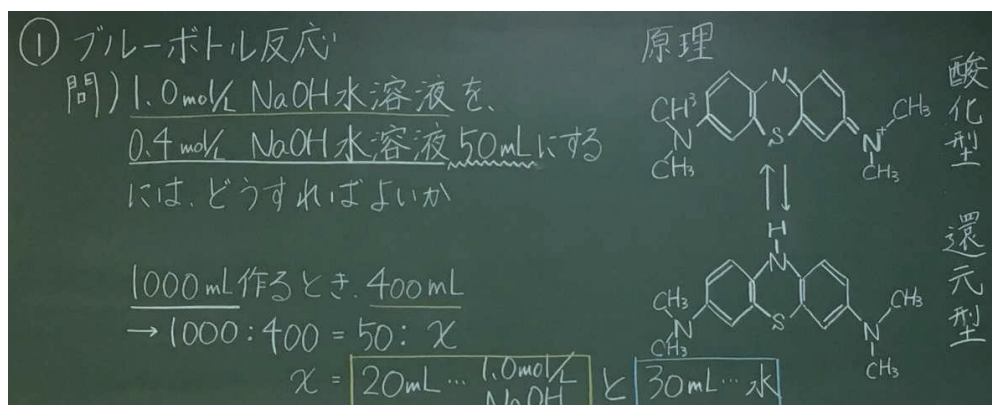 ① ブルーボトル反応
問) 1.0mol/L NaOH水溶液を、
0.4mol/L NaOH水溶液50mLにする
には、どうすればよいか
1000mL作るとき、400mL
→ 1000:400 = 50:x
x = 20mL… 1.0mol/L NaOH と 30mL…水
原理
酸化型
N
S
CH³
N
CH₃
N⁺
CH₃
CH₃
還元型
H
N
S
CH₃
N
CH₃
CH₃
N
CH₃